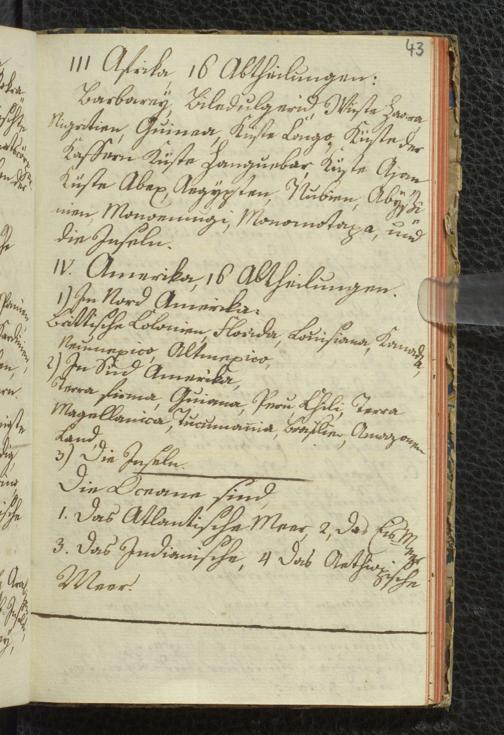 43
III Afrika, 16 Abtheilungen:
Barbareÿ, Biledulgerid, Wüste Zaara
Nigritien, Guinea, Küste Congo, Küste der
Kaffern Küste Zanguebar, Küste Ajan
Küste Abex, Aegÿpten, Nubien, Abÿßi
nien, Monoemugi, Monomotapa, und
die Inseln.
IV. Amerika, 16 Abtheilungen.
1) In Nord Amerika:
Brittische Colonien, Florida, Louisiana, Kanada,
Neumexico, Altmexico,
2) In Süd Amerika,
Terra firma, Guiana, Peru, Chili, Terra
Magellanica, Tucumania, Brasilien, Amazonen
Land,
3) Die Inseln.
Die Oceane sind,
1. Das Atlantische Meer, 2, Das Eis Meer
3. Das Indianische, 4 Das Aethiopische
Meer.